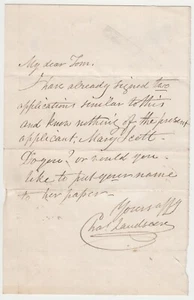 My dear Tom.
I have already signed two
applications similar to this
and know nothing of the present
applicant, Mary Scott.
Do you? or would you
like to put your name
to her paper
Yours affly
Chas Landseer